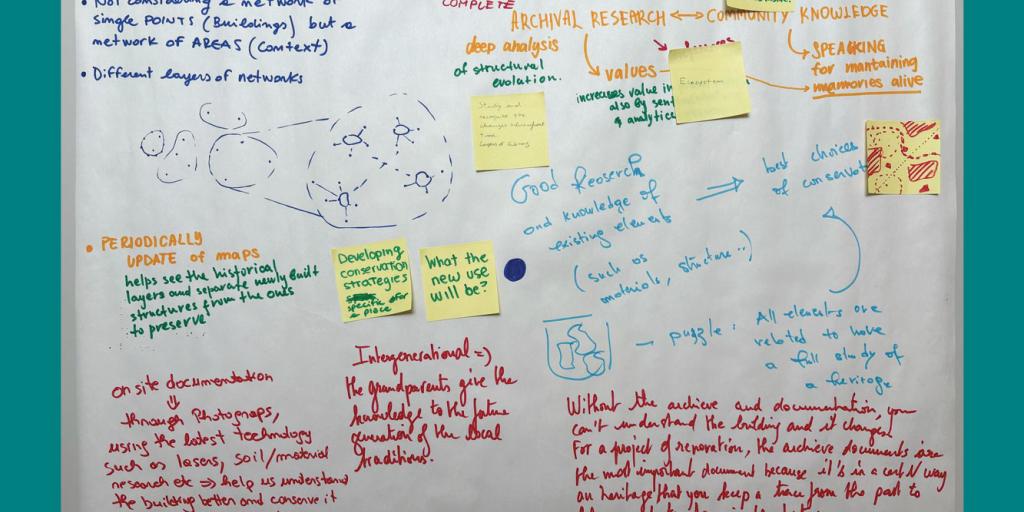 • Not considering a network of
single POINTS (Buildings) but a
network of AREAS (Context)
• Different layers of networks
COMPLETE
deep analysis
of structural
evolution.
Study and
recognise the
changes throughout
time
Layers of history
ARCHIVAL RESEARCH ↔ COMMUNITY KNOWLEDGE
values
increases value in
also by
& analytics
Ecosystem
SPEAKING
for mantaining
memories alive
Good Research
and knowledge of
existing elements
(such as
materials, structure..)
⇒ best choices
of conservat
• PERIODICALLY
UPDATE of maps
helps see the historical
layers and separate newly built
structures from the ones
to preserve
Developing
conservation
strategies
specific for
a place
What the
new use
will be?
— puzzle: All elements are
related to have
a full study of
a heritage
on site documentation
⇓
through Photograps,
using the latest technology
such as lasers, soil/material
research etc ⇒ help us understand
the building better and conserve it
Intergenerational =)
the grandparents give the
knowledge to the future
generation of the local
traditions.
Without the archieve and documentation, you
can't understand the building and it changes!
For a project of renovation, the archieve documents are
the most important document because it's in a way
an heritage that you keep a trace from the past to